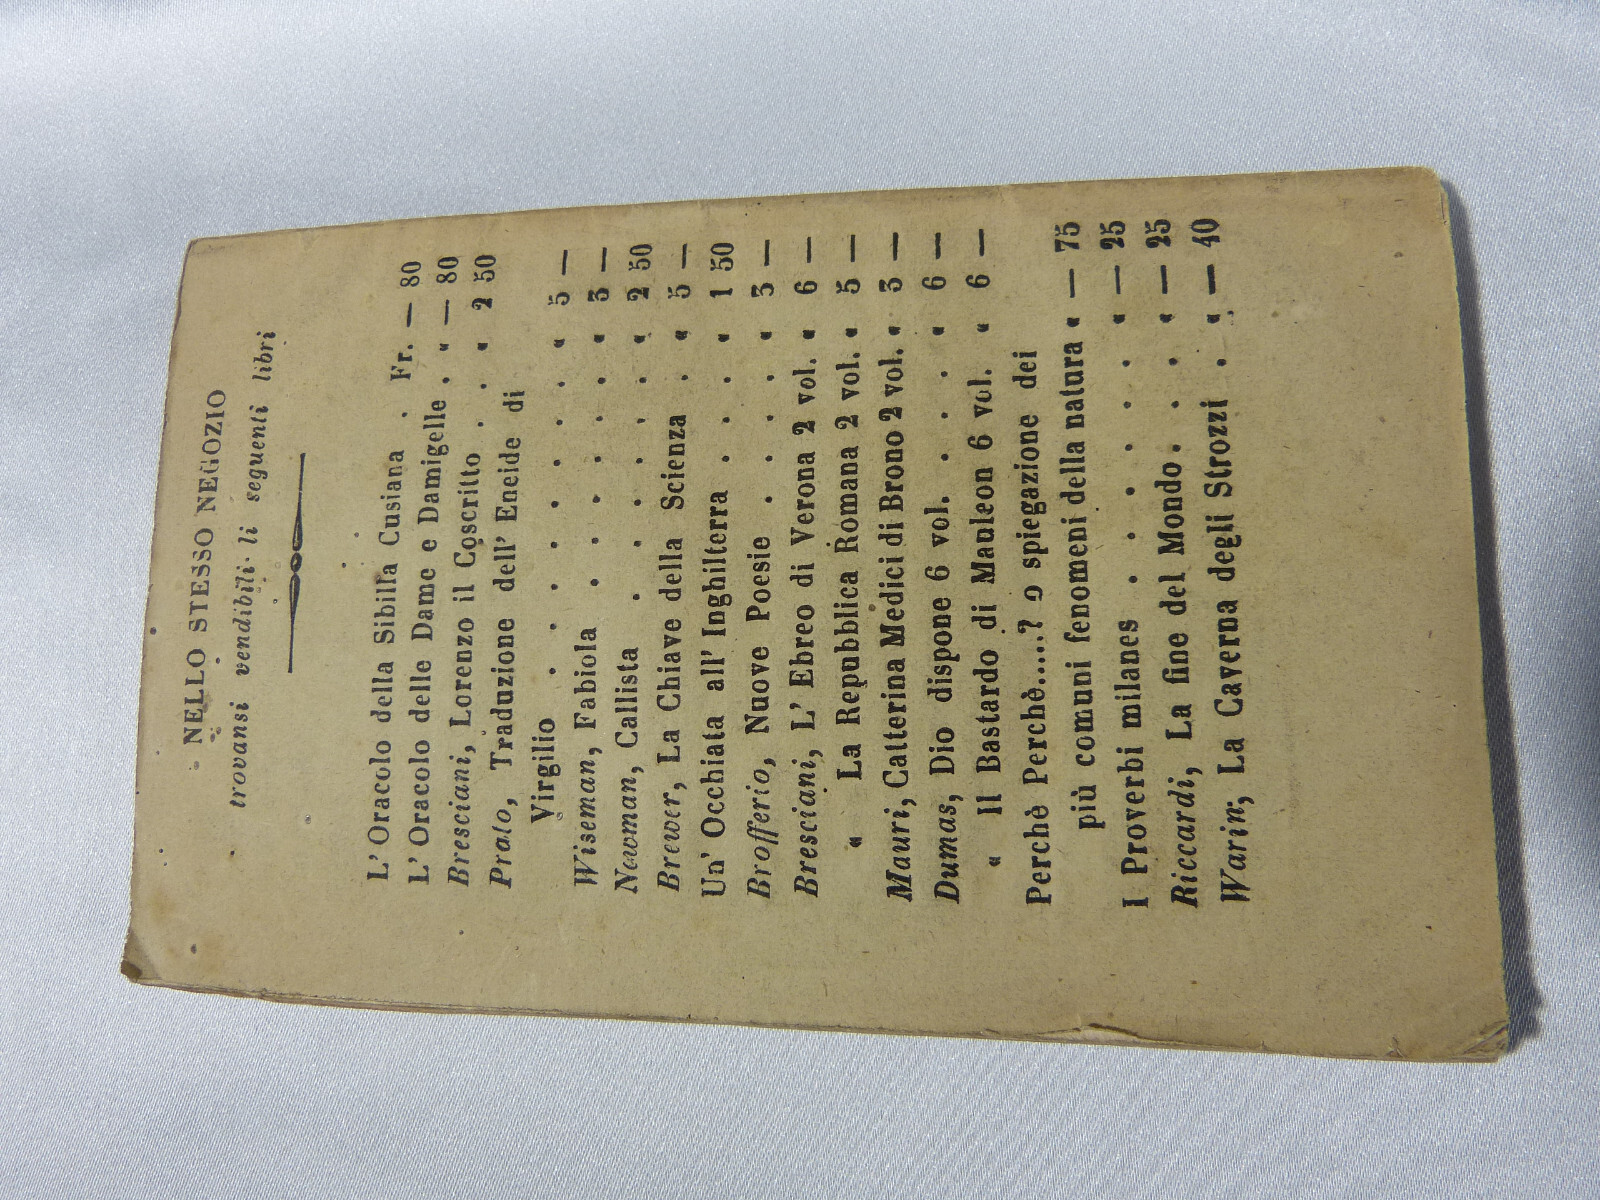 NELLO STESSO NEGOZIO
trovansi vendibili li seguenti libri
L' Oracolo della Sibilla Cusiana . Fr. — 80
L' Oracolo delle Dame e Damigelle . « — 80
Bresciani, Lorenzo il Coscritto . . « 2 50
Prato, Traduzione dell' Eneide di
Virgilio . . . . . . . « 5 —
Wiseman, Fabiola . . . . . . « 3 —
Newman, Callista . . . . . . « 2 50
Brewer, La Chiave della Scienza . « 5 —
Un' Occhiata all' Inghilterra . . . « 1 50
Brofferio, Nuove Poesie . . . . « 3 —
Bresciani, L' Ebreo di Verona 2 vol. « 6 —
« La Repubblica Romana 2 vol. « 5 —
Mauri, Catterina Medici di Brono 2 vol. « 3 —
Dumas, Dio dispone 6 vol. . . . . « 6 —
« Il Bastardo di Mauleon 6 vol. « 6 —
Perchè Perchè.....? o spiegazione dei
più comuni fenomeni della natura « — 75
I Proverbi milanes . . . . . . « — 25
Riccardi, La fine del Mondo . . . . « — 25
Warin, La Caverna degli Strozzi . « — 40